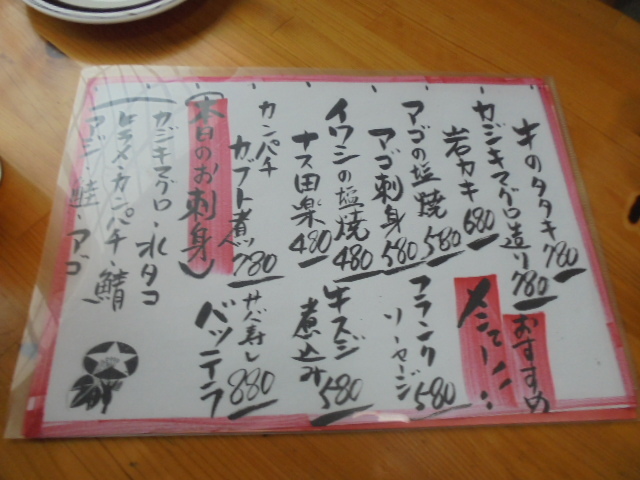 おすすめ
メニュー!!
牛のタタキ 780
カジキマグロ造り 780
岩カキ 680
アゴの塩焼 580
アゴ刺身 580
イワシの塩焼 480
ナス田楽 480
カンパチ
カブト煮 780
フランク
ソーセージ 580
牛スジ
煮込み 580
サバ寿し
バッテラ 880
(本日のお刺身)
カジキマグロ・水タコ
ヒラメ・カンパチ・鯖
アジ・鮭・アゴ